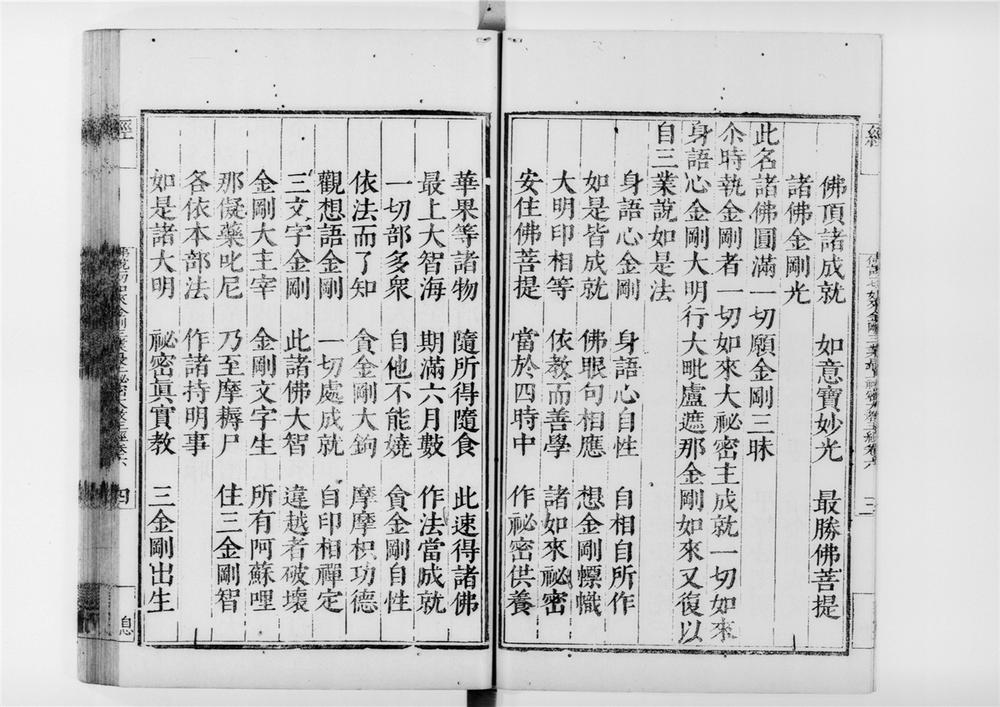 佛頂諸成就　如意寶妙光　最勝佛菩提
諸佛金剛光
此名諸佛圓滿一切願金剛三昧
尒時執金剛者一切如來大祕密主成就一切如來
身語心金剛大明行大毗盧遮那金剛如來又復以
自三業說如是法
身語心金剛　身語心自性　自相自所作
如是皆成就　佛眼句相應　想金剛幖幟
大明印相等　依教而善學　諸如來祕密
安住佛菩提　當於四時中　作祕密供養
經
三
華果等諸物　隨所得隨食　此速得諸佛
最上大智海　期滿六月數　作法當成就
一切部多衆　自他不能嬈　貪金剛自性
依法而了知　貪金剛大鉤　摩摩枳功德
觀想語金剛　一切處成就　自印相禪定
三文字金剛　此諸佛大智　違越者破壞
金剛大主宰　金剛文字生　所有阿蘇哩
那儗藥叱尼　乃至摩耨尸　住三金剛智
各依本部法　作諸持明事
如是諸大明　祕密眞實教　三金剛出生
經
四
息